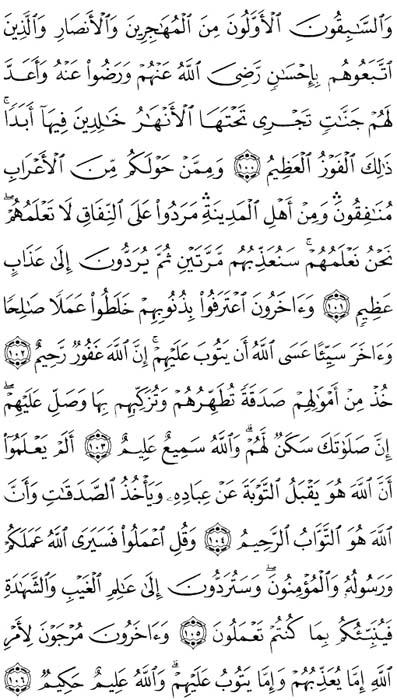 وَالسَّٰبِقُونَ الْأَوَّلُونَ مِنَ الْمُهَٰجِرِينَ وَالْأَنصَارِ وَالَّذِينَ
اتَّبَعُوهُم بِإِحْسَٰنٍ رَّضِىَ اللَّهُ عَنْهُمْ وَرَضُوا۟ عَنْهُ وَأَعَدَّ
لَهُمْ جَنَّٰتٍ تَجْرِى تَحْتَهَا الْأَنْهَٰرُ خَٰلِدِينَ فِيهَآ أَبَدًا ۚ
ذَٰلِكَ الْفَوْزُ الْعَظِيمُ ﴿١٠٠﴾ وَمِمَّنْ حَوْلَكُم مِّنَ الْأَعْرَابِ
مُنَٰفِقُونَ ۖ وَمِنْ أَهْلِ الْمَدِينَةِ ۖ مَرَدُوا۟ عَلَى النِّفَاقِ لَا تَعْلَمُهُمْ ۖ
نَحْنُ نَعْلَمُهُمْ ۚ سَنُعَذِّبُهُم مَّرَّتَيْنِ ثُمَّ يُرَدُّونَ إِلَىٰ عَذَابٍ
عَظِيمٍ ﴿١٠١﴾ وَءَاخَرُونَ اعْتَرَفُوا۟ بِذُنُوبِهِمْ خَلَطُوا۟ عَمَلًا صَٰلِحًا
وَءَاخَرَ سَيِّئًا عَسَى اللَّهُ أَن يَتُوبَ عَلَيْهِمْ ۚ إِنَّ اللَّهَ غَفُورٌ رَّحِيمٌ ﴿١٠٢﴾
خُذْ مِنْ أَمْوَٰلِهِمْ صَدَقَةً تُطَهِّرُهُمْ وَتُزَكِّيهِم بِهَا وَصَلِّ عَلَيْهِمْ ۖ
إِنَّ صَلَوٰتَكَ سَكَنٌ لَّهُمْ ۗ وَاللَّهُ سَمِيعٌ عَلِيمٌ ﴿١٠٣﴾ أَلَمْ يَعْلَمُوٓا۟
أَنَّ اللَّهَ هُوَ يَقْبَلُ التَّوْبَةَ عَنْ عِبَادِهِۦ وَيَأْخُذُ الصَّدَقَٰتِ وَأَنَّ
اللَّهَ هُوَ التَّوَّابُ الرَّحِيمُ ﴿١٠٤﴾ وَقُلِ اعْمَلُوا۟ فَسَيَرَى اللَّهُ عَمَلَكُمْ
وَرَسُولُهُۥ وَالْمُؤْمِنُونَ ۖ وَسَتُرَدُّونَ إِلَىٰ عَٰلِمِ الْغَيْبِ وَالشَّهَٰدَةِ
فَيُنَبِّئُكُم بِمَا كُنتُمْ تَعْمَلُونَ ﴿١٠٥﴾ وَءَاخَرُونَ مُرْجَوْنَ لِأَمْرِ
اللَّهِ إِمَّا يُعَذِّبُهُمْ وَإِمَّا يَتُوبُ عَلَيْهِمْ ۗ وَاللَّهُ عَلِيمٌ حَكِيمٌ ﴿١٠٦﴾